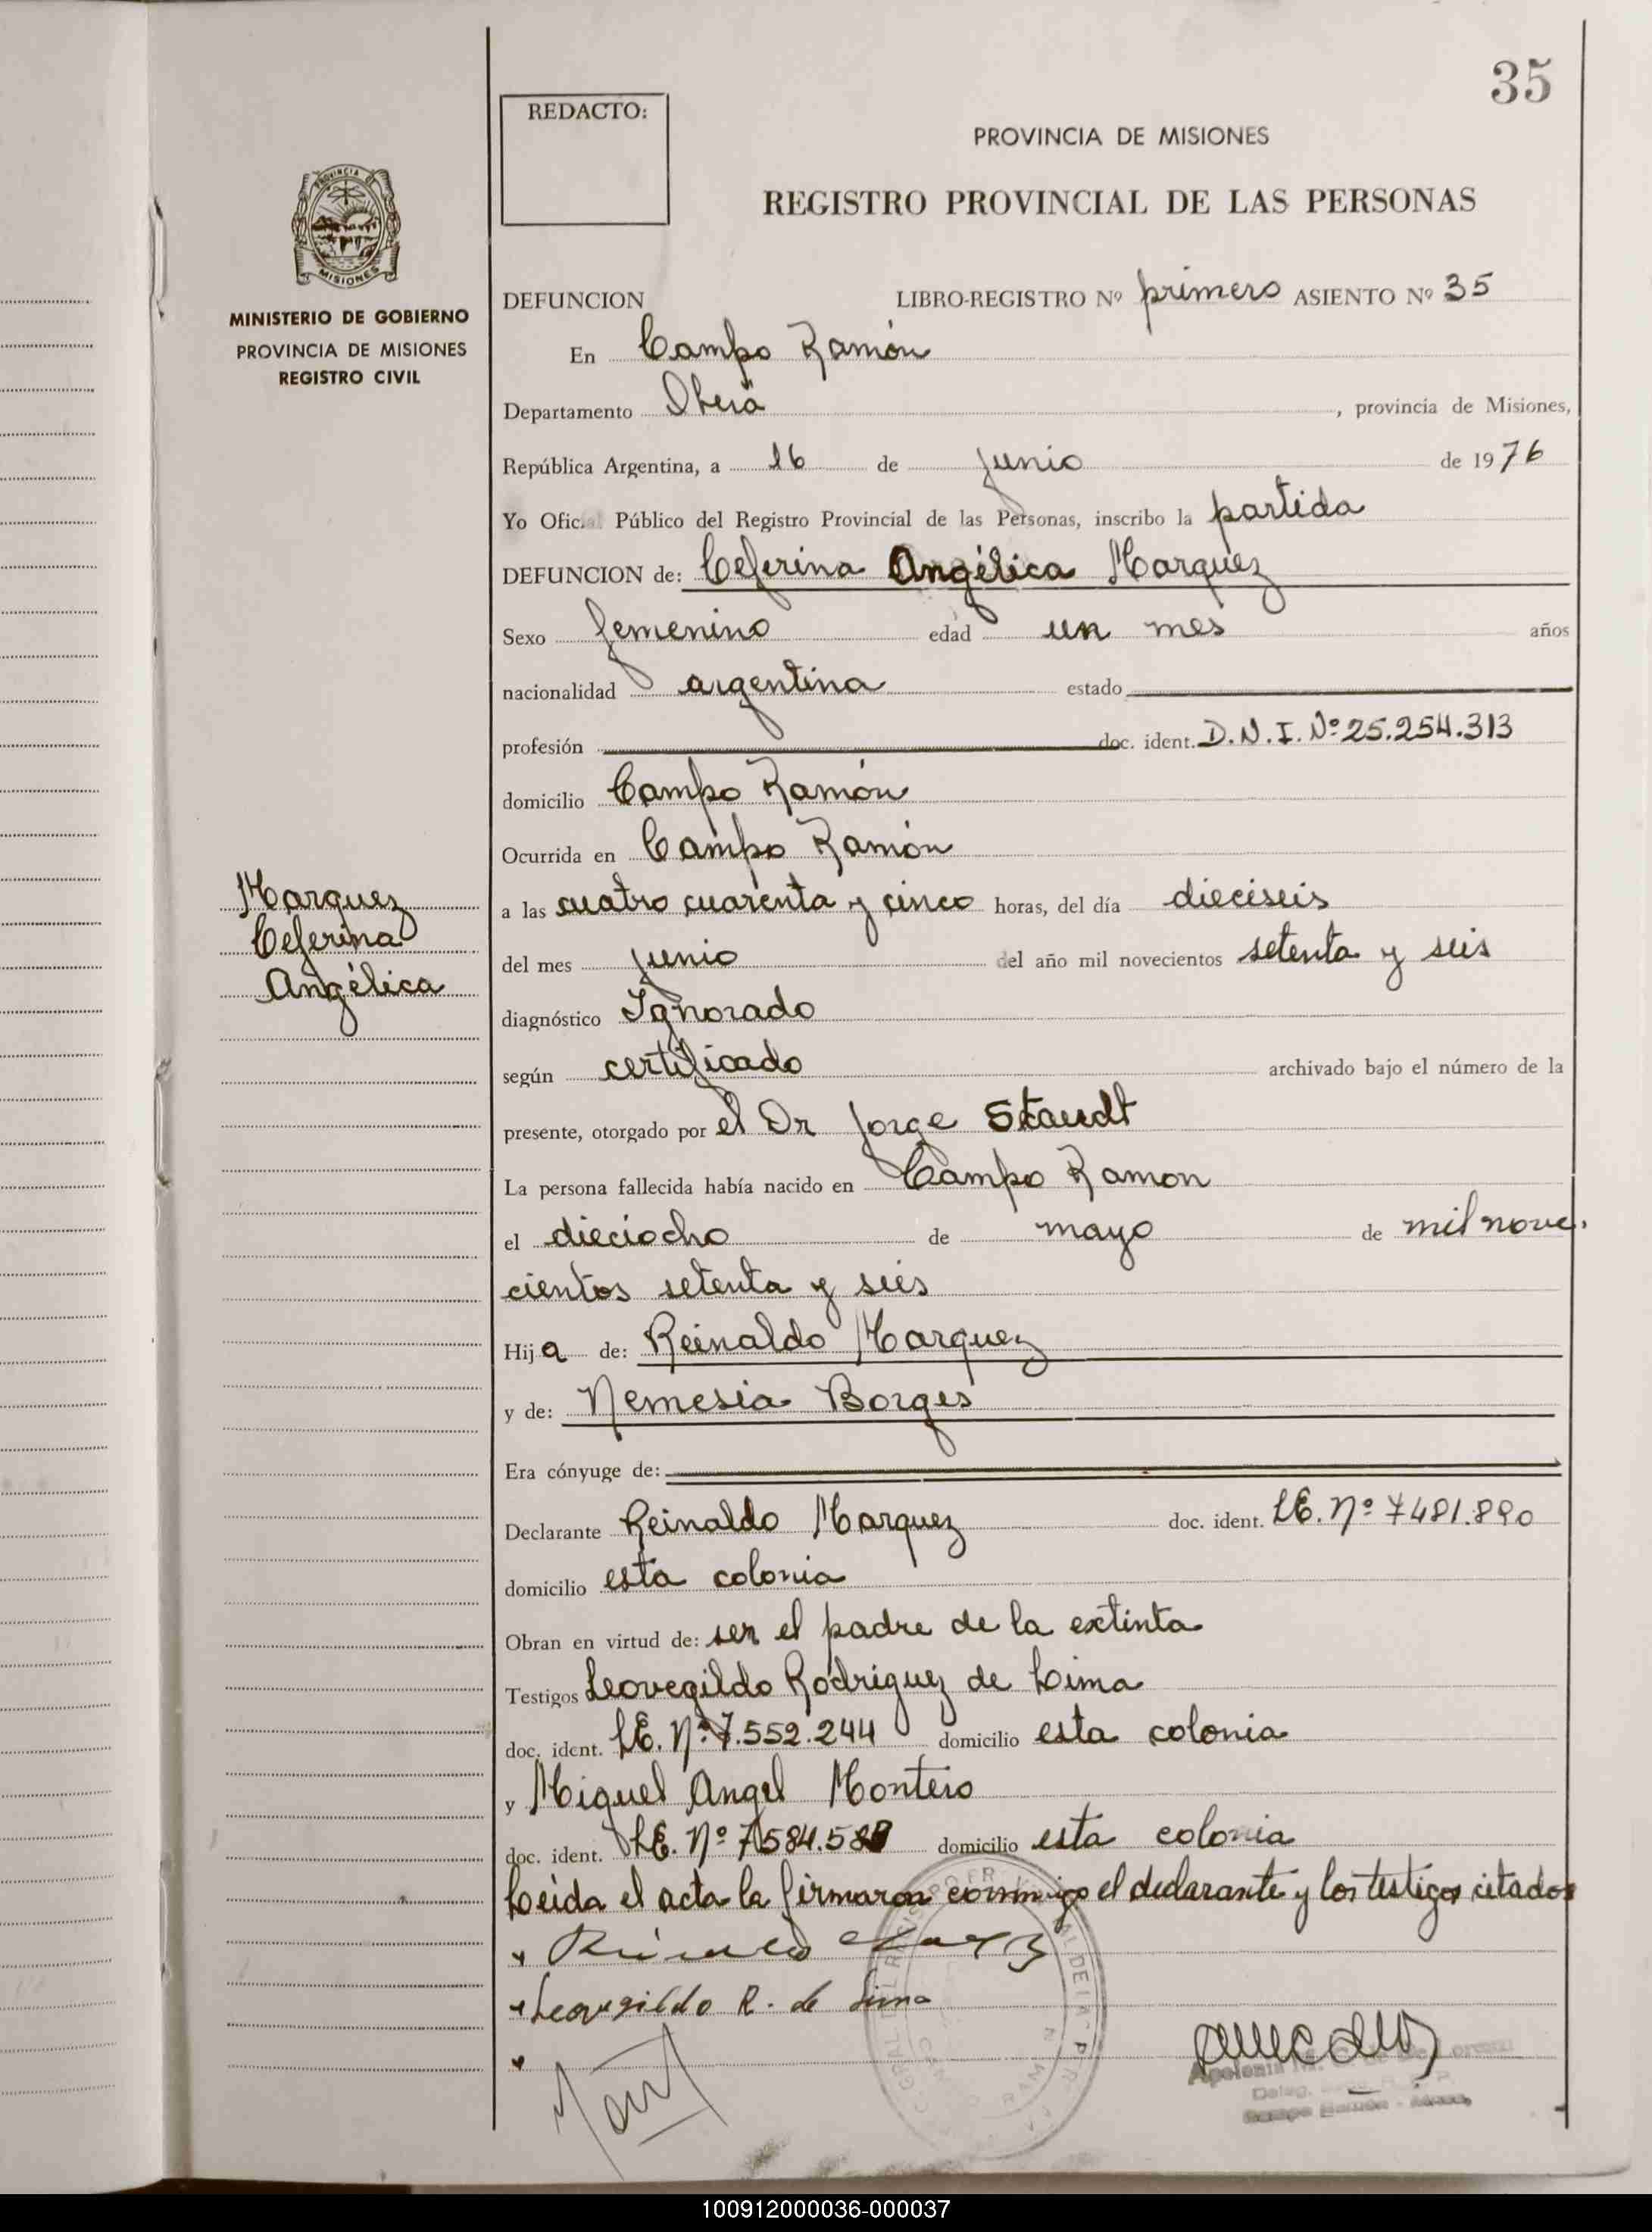 35
REDACTO:
PROVINCIA DE MISIONES
REGISTRO PROVINCIAL DE LAS PERSONAS
PROVINCIA
MISIONES
MINISTERIO DE GOBIERNO
PROVINCIA DE MISIONES
REGISTRO CIVIL
DEFUNCION LIBRO-REGISTRO Nº primero ASIENTO Nº 35
En Campo Ramón
Departamento Oberá, provincia de Misiones,
República Argentina, a 16 de junio de 1976
Yo Oficial Público del Registro Provincial de las Personas, inscribo la partida
DEFUNCION de: Ceferina Angélica Marquez
Sexo femenino edad un mes años
nacionalidad argentina estado
profesión doc. ident. D.N.I. Nº 25.254.313
domicilio Campo Ramón
Ocurrida en Campo Ramón
Marquez
Ceferina
Angélica
a las cuatro cuarenta y cinco horas, del día dieciseis
del mes junio del año mil novecientos setenta y seis
diagnóstico Ignorado
según certificado archivado bajo el número de la
presente, otorgado por el Dr Jorge Staudt
La persona fallecida había nacido en Campo Ramon
el dieciocho de mayo de mil nove
cientos setenta y seis
Hija de: Reinaldo Marquez
y de: Nemesia Borges
Era cónyuge de:
Declarante Reinaldo Marquez doc. ident. LE. Nº 7481.890
domicilio esta colonia
Obran en virtud de: ser el padre de la extinta
Testigos Leovegildo Rodriguez de Lima
doc. ident. LE. Nº 7.552.244 domicilio esta colonia
y Miguel Angel Montero
doc. ident. LE. Nº domicilio esta colonia
Leida el acta la firmaron conmigo el declarante y los testigos citados
Leovegildo R. de Lima
CAMPO RAMON
100912000036-000037